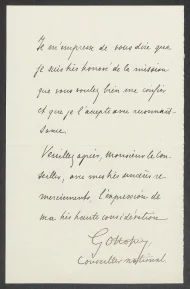 Je m'empresse de vous dire que
je suis très honoré de la mission
que vous voulez bien me confier
et que je l'accepte avec reconnais-
sance.
Veuillez agréer, monsieur le Con-
seiller, avec mes très sincères re-
merciements, l'expression de
ma très haute considération
Conseiller national